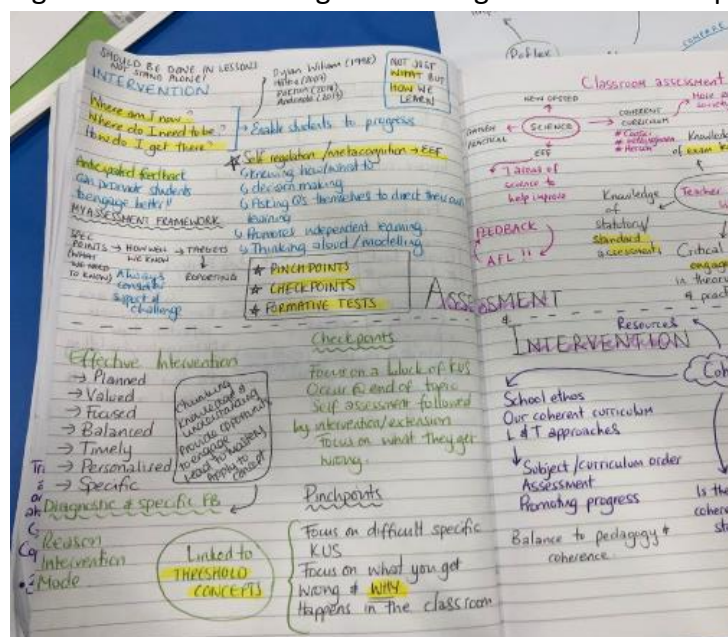 SHOULD BE DONE IN LESSONS
NOT STAND ALONE!
INTERVENTION
Dylan Wiliam (1998)
NOT JUST
WHAT BUT
HOW WE
LEARN
Where am I now?
Where do I need to be?
How do I get there?
Enable students to progress
Self regulation/metacognition → EEF
knowing how/what to
decision making
Asking Q's themselves to direct their own
learning
Promotes independent learning
Thinking aloud/modelling
Anticipated feedback
can promote students
to engage better!!
MY ASSESSMENT FRAMEWORK
SPEC
POINTS → HOW WELL → TARGETS
(WHAT
WE KNOW
WE NEED
TO KNOW)
REPORTING
Always
consider
aspect of
challenge
★ PINCHPOINTS
★ CHECKPOINTS
★ FORMATIVE TESTS
Effective Intervention
→ Planned
→ Valued
→ Focused
→ Balanced
→ Timely
→ Personalised
→ Specific
Chunking
knowledge &
understanding
Provide opportunities
to engage
Lead to mastery
Apply to
concept
Diagnostic & specific FB
Reason
Intervention
Mode
Linked to
THRESHOLD
CONCEPTS
Checkpoints
Focus on a block of KUS
Occur @ end of topic
Self assessment followed
by intervention/extension
Focus on what they get
wrong.
Pinchpoints
Focus on difficult specific
KUS
Focus on what you get
wrong & WHY
Happens in the classroom
Reflex
COMPARE
Classroom assessment
NEW OFSTED
SCIENCE
PRACTICAL
COHERENT
CURRICULUM
EEF
7 areas of
science to
help improve
Knowledge
of exam
Teacher
Knowledge
of
statutory/
standard
assessment
FEEDBACK
AFL !!
Critical
engage
in theory
& pract
ASSESSMENT
&
INTERVENTION
Resources
Coh
School ethos
Our coherent curriculum
L & T approaches
Subject/curriculum order
Assessment
Promoting progress
Balance to pedagogy &
coherence
Is the
cohere